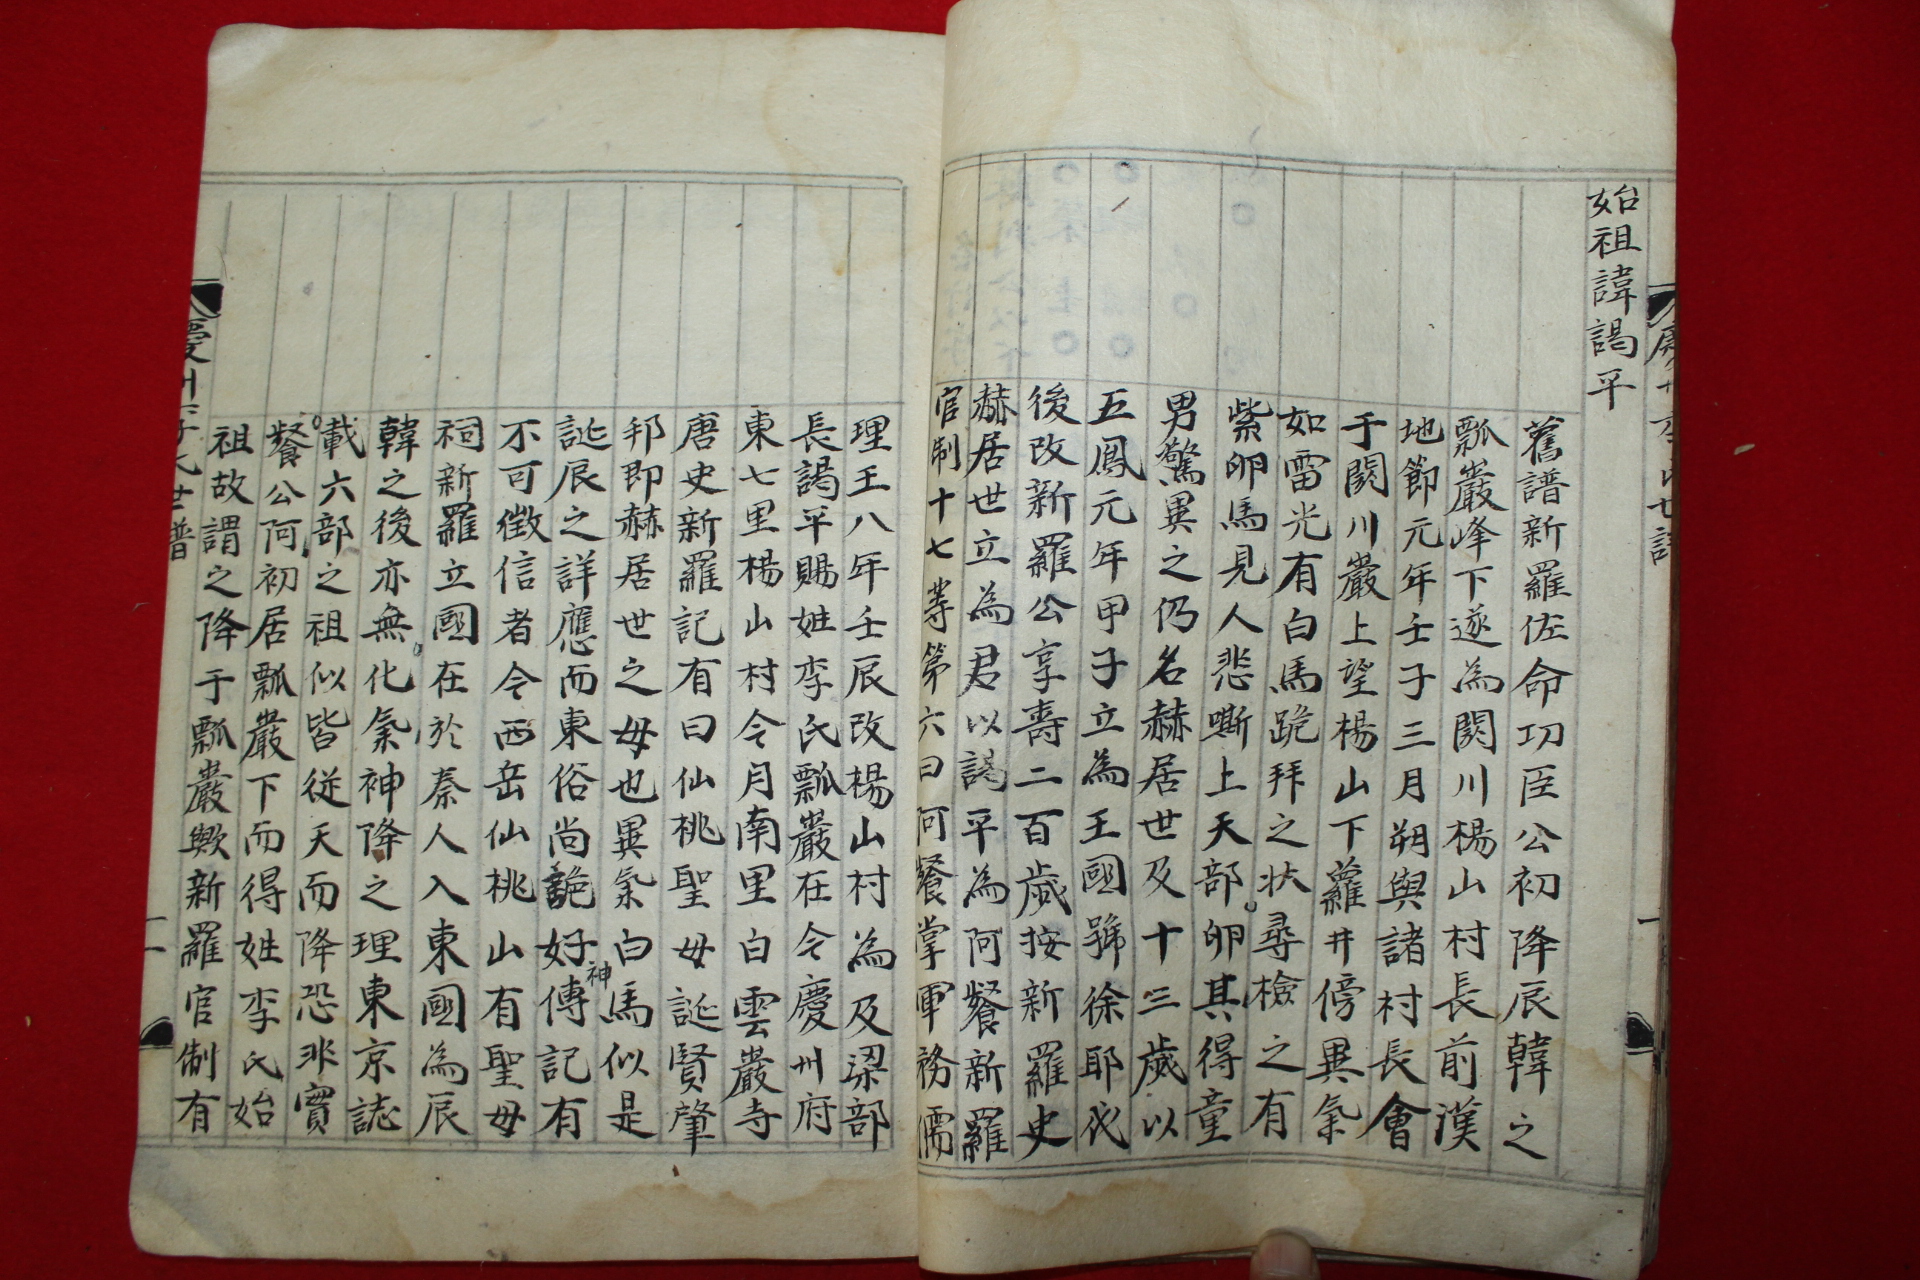 始祖諱謁平
舊譜新羅佐命功臣公初降辰韓之
瓢巖峰下遂為閼川楊山村長前漢
地節元年壬子三月朔與諸村長會
于閼川巖上望楊山下蘿井傍異氣
如雷光有白馬跪拜之狀尋檢之有
紫卵馬見人悲嘶上天部卵其得童
男驚異之仍名赫居世及十三歲以
五鳳元年甲子立為王國號徐耶伐
後改新羅公享壽二百歲按新羅史
赫居世立為君以謁平為阿餐新羅
官制十七等第六曰阿餐掌軍務儒
理王八年壬辰改楊山村為及梁部
長謁平賜姓李氏瓢巖在今慶州府
東七里楊山村今月南里白雲巖寺
唐史新羅記有曰仙桃聖母誕賢肇
邦即赫居世之母也異氣白馬似是
神
誕辰之詳應而東俗尚詭好傳記有
不可徵信者今西岳仙桃山有聖母
祠新羅立國在於秦人入東國為辰
韓之後亦無化氣神降之理東京誌
載六部之祖似皆從天而降恐非實
餐公阿初居瓢巖下而得姓李氏始
祖故謂之降于瓢巖歟新羅官制有
慶州李氏世譜
一